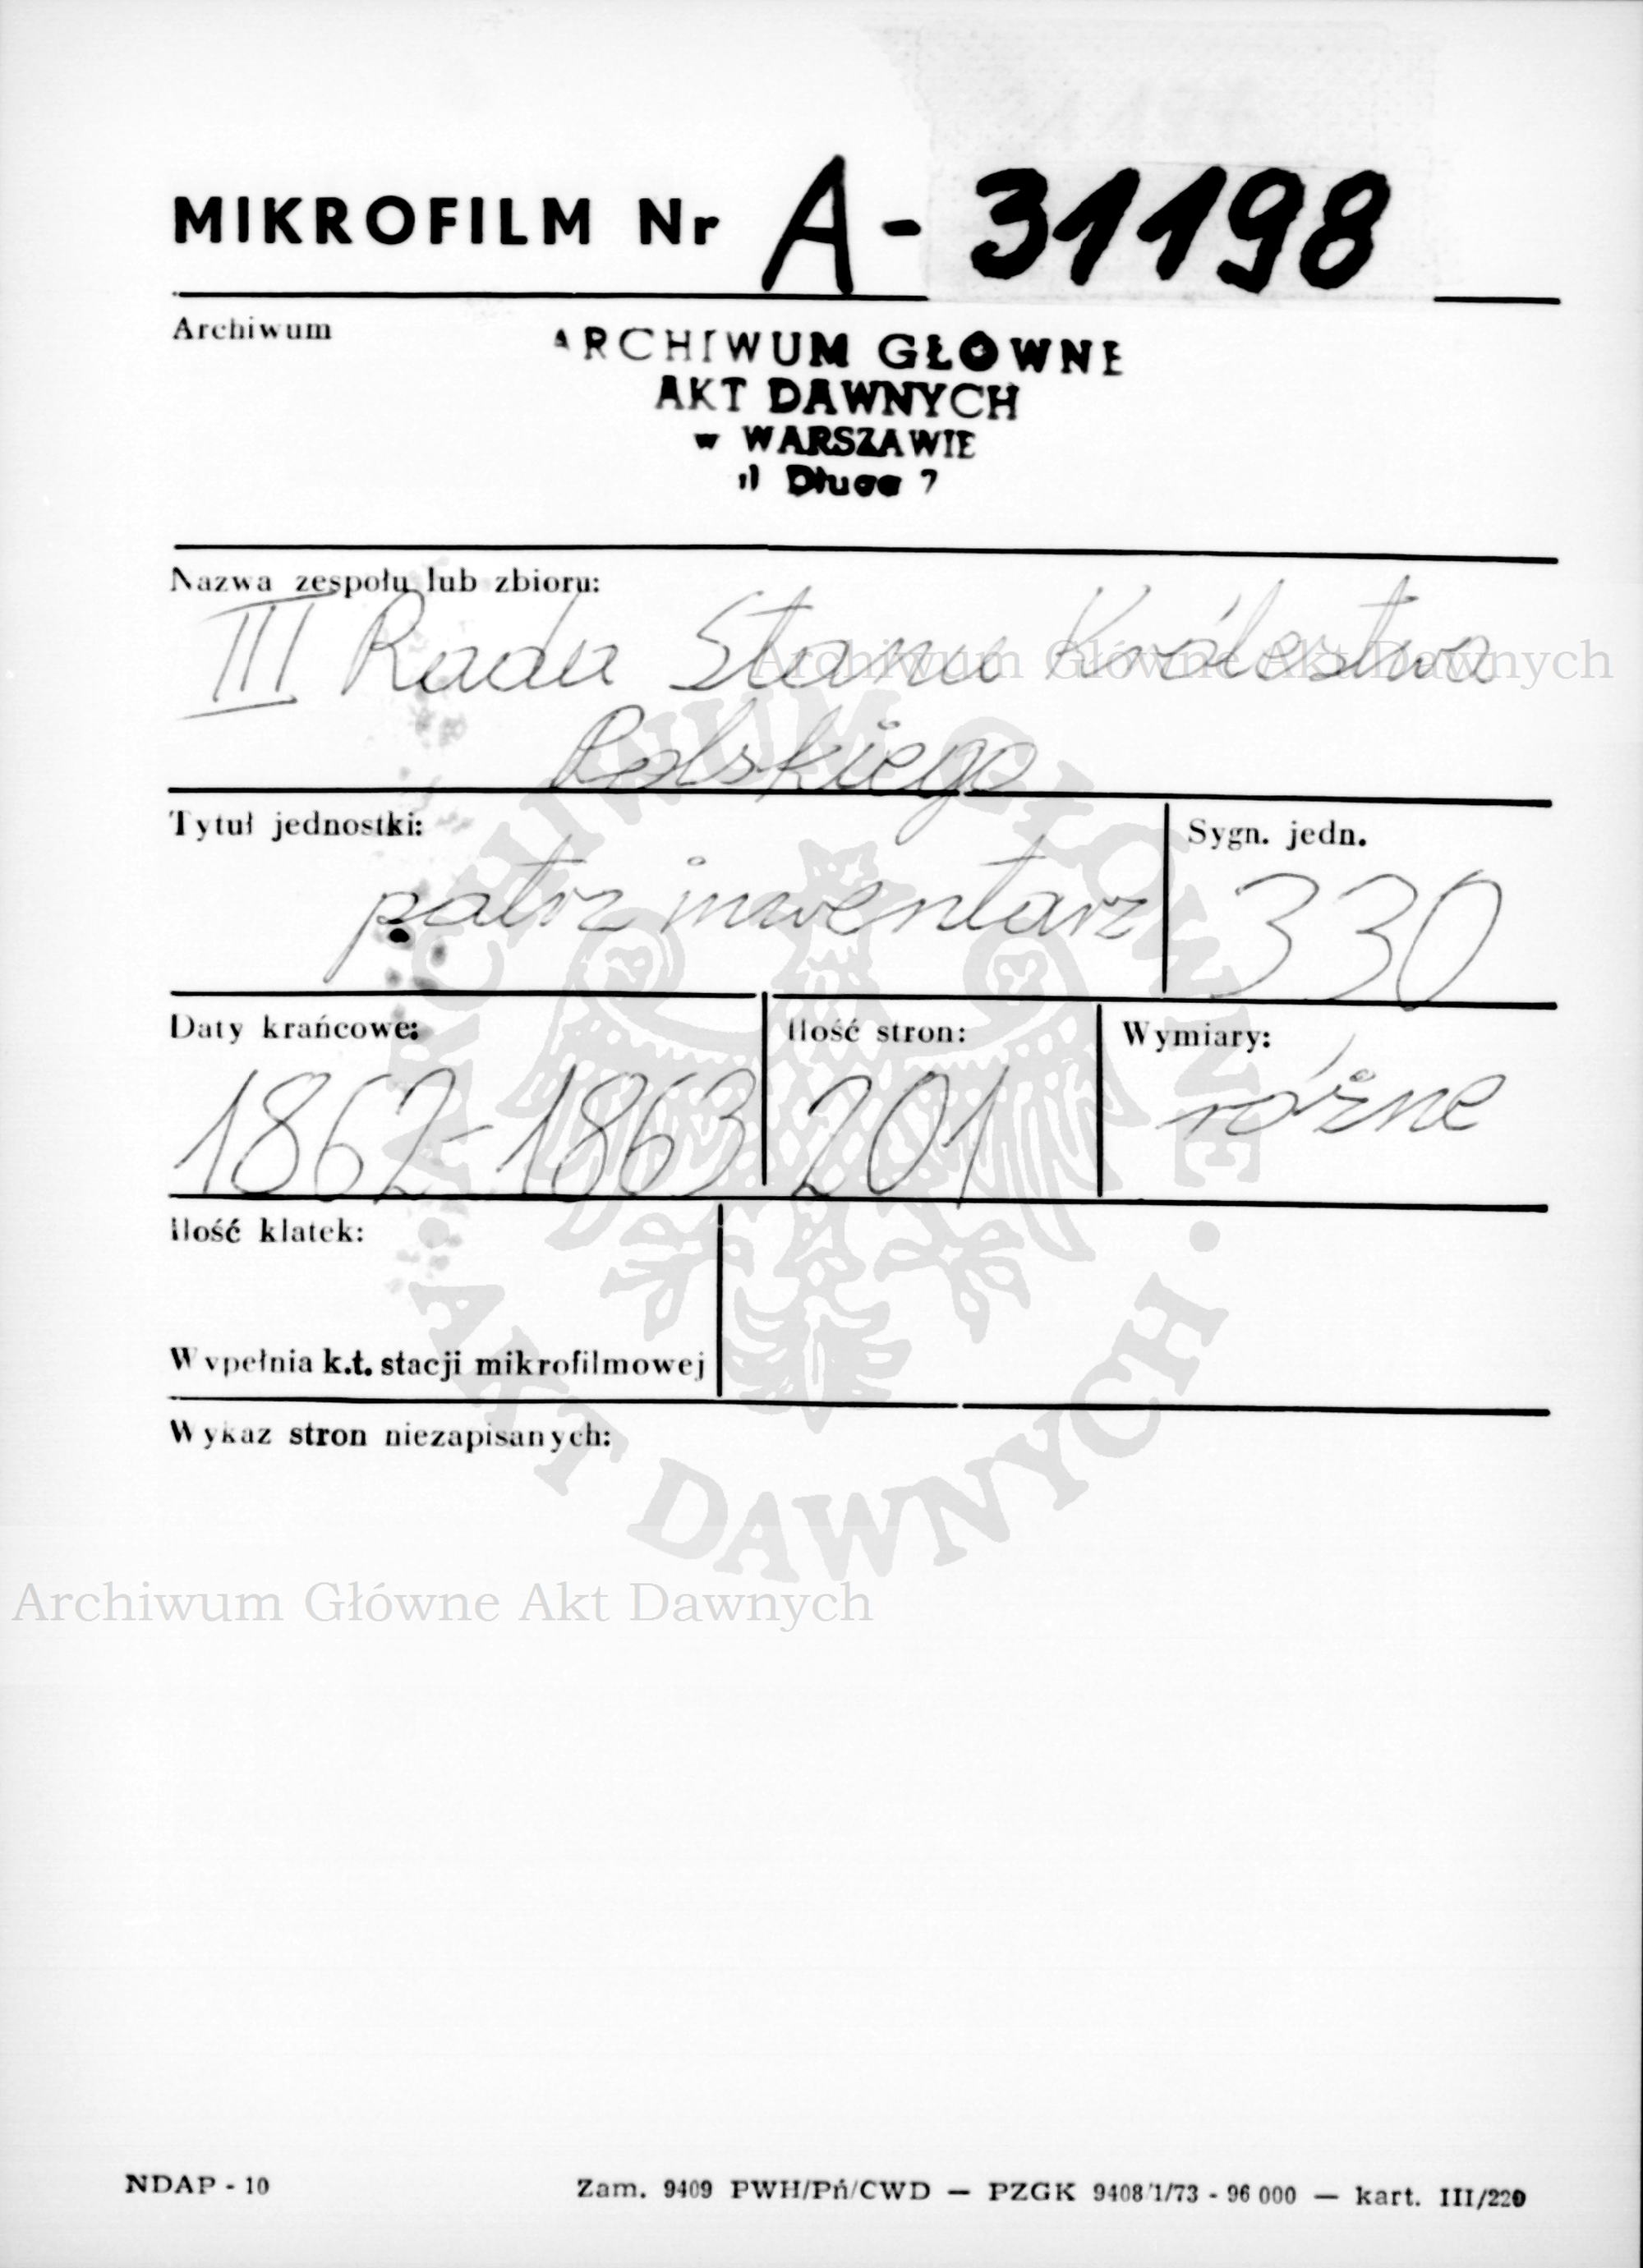 MIKROFILM Nr A-31198
Archiwum
ARCHIWUM GŁOWNE
AKT DAWNYCH
w WARSZAWIE
ul Długa 7
Nazwa zespołu lub zbioru:
III Rada Stanu Królestwa
Polskiego
Archiwum Główne Akt Dawnych
Tytuł jednostki:
patrz inwentarz
Sygn. jedn.
330
Daty krańcowe:
1862-1863
Ilość stron:
201
Wymiary:
różne
Ilość klatek:
Wypełnia k.t. stacji mikrofilmowej
Wykaz stron niezapisanych:
ARCHIWUM GŁÓWNE · AKT DAWNYCH ·
Archiwum Główne Akt Dawnych
NDAP - 10
Zam. 9409 PWH/Pń/CWD — PZGK 9408/1/73 - 96 000 — kart. III/220